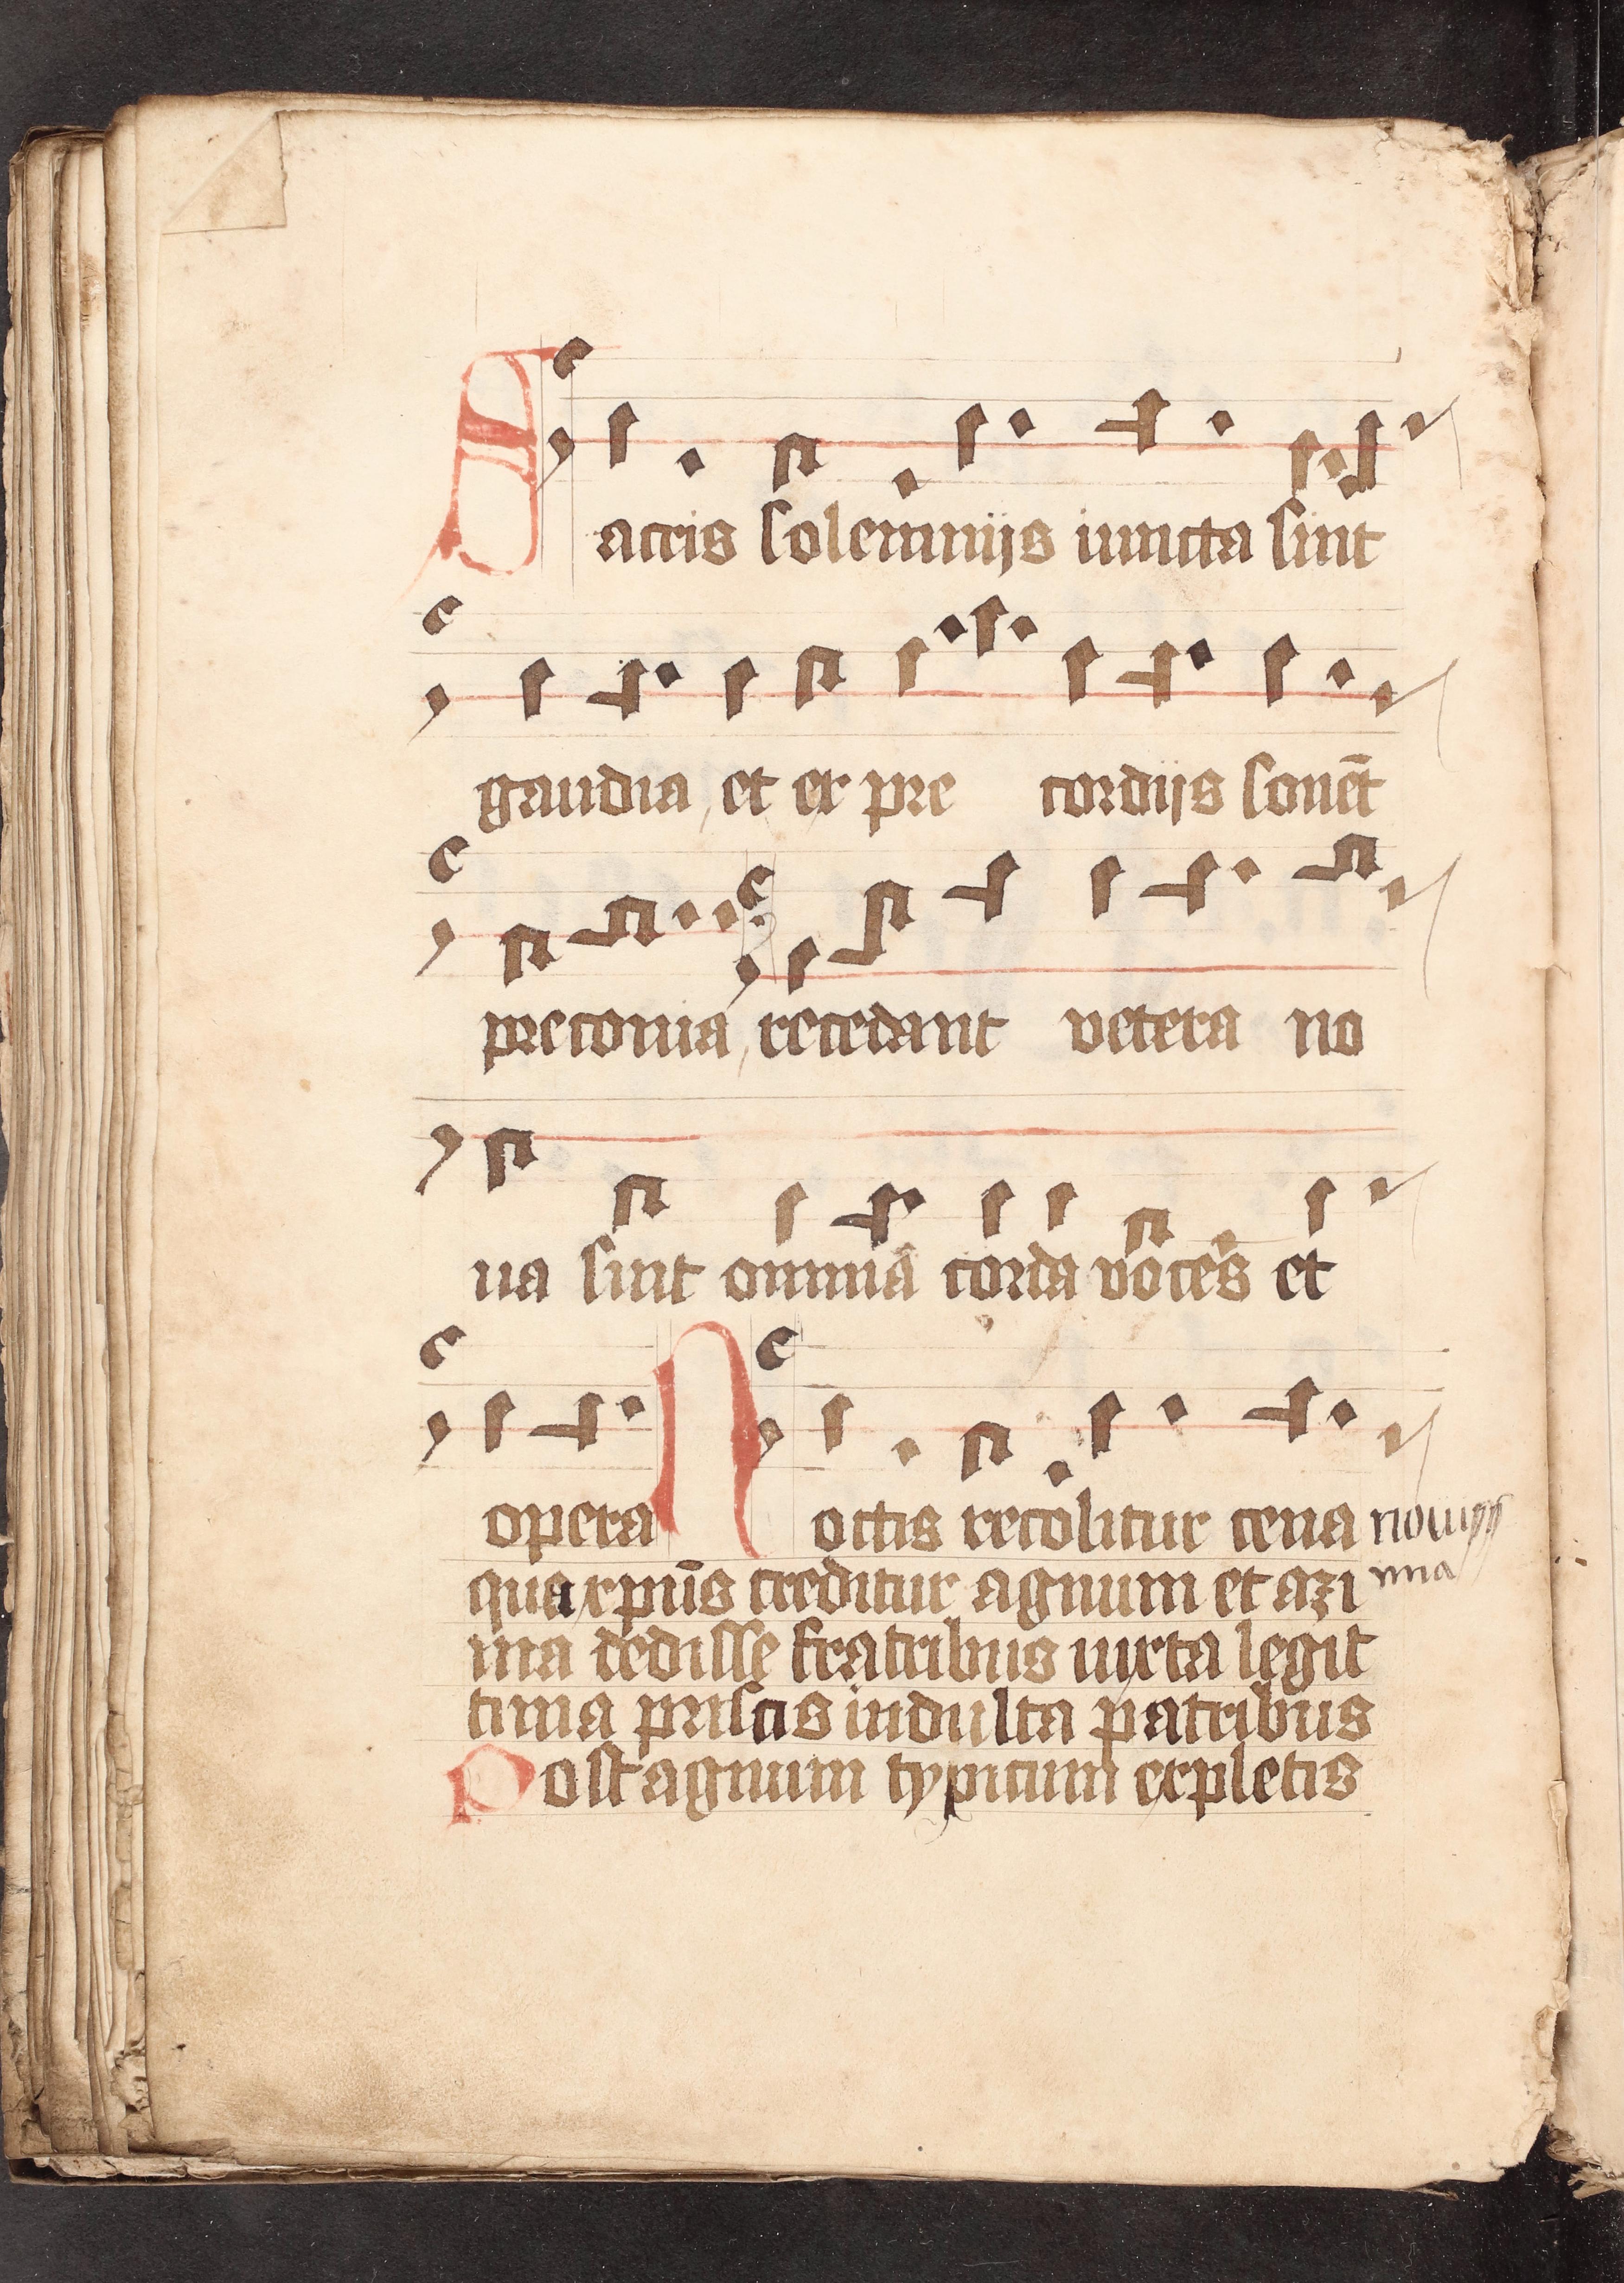 Sacris solemniis iuncta sint
gaudia, et ex pre cordiis sonēt
preconia, recedant vetera no
ua sint omnia corda voces et
opera Noctis recolitur cena nouiss
qua xpūs creditur agnum et azi ima
ma dedisse fratribus iuxta legit
tima priscis indulta patribus
Post agnum typicum expletis